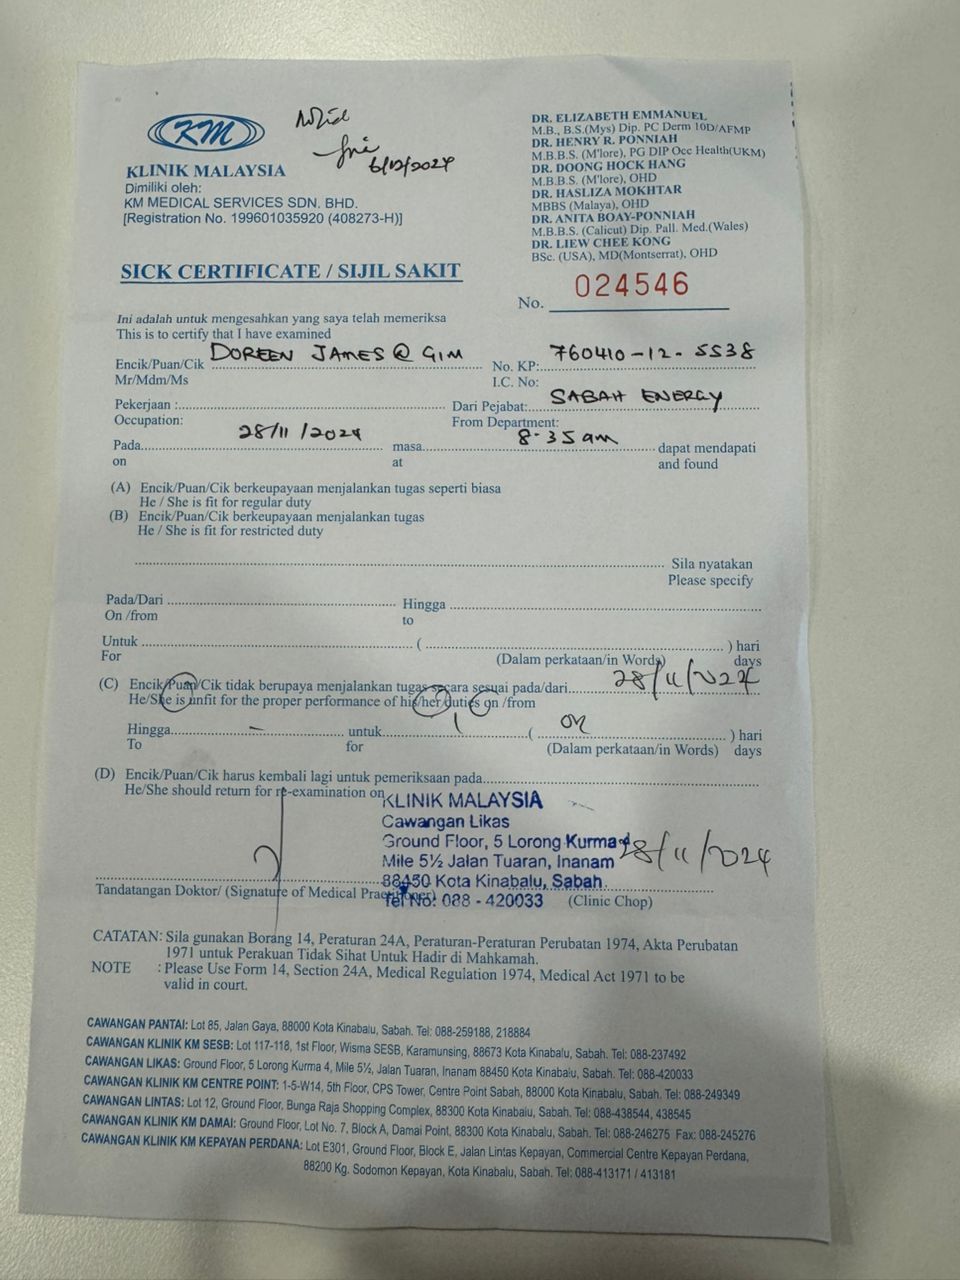 KM
Noted
6/12/2024
KLINIK MALAYSIA
Dimiliki oleh:
KM MEDICAL SERVICES SDN. BHD.
[Registration No. 199601035920 (408273-H)]
DR. ELIZABETH EMMANUEL
M.B., B.S.(Mys) Dip. PC Derm 10D/AFMP
DR. HENRY R. PONNIAH
M.B.B.S. (M'lore), PG DIP Occ Health(UKM)
DR. DOONG HOCK HANG
M.B.B.S. (M'lore), OHD
DR. HASLIZA MOKHTAR
MBBS (Malaya), OHD
DR. ANITA BOAY-PONNIAH
M.B.B.S. (Calicut) Dip. Pall. Med.(Wales)
DR. LIEW CHEE KONG
BSc. (USA), MD(Montserrat), OHD
SICK CERTIFICATE / SIJIL SAKIT
No. 024546
Ini adalah untuk mengesahkan yang saya telah memeriksa
This is to certify that I have examined
Encik/Puan/Cik DOREEN JAMES @ GIM No. KP: 760410-12-5538
Mr/Mdm/Ms I.C. No:
Pekerjaan : Dari Pejabat: SABAH ENERGY
Occupation: From Department:
Pada 28/11/2024 masa 8-35am dapat mendapati
on at and found
(A) Encik/Puan/Cik berkeupayaan menjalankan tugas seperti biasa
He / She is fit for regular duty
(B) Encik/Puan/Cik berkeupayaan menjalankan tugas
He / She is fit for restricted duty
Sila nyatakan
Please specify
Pada/Dari Hingga
On /from to
Untuk ( ) hari
For (Dalam perkataan/in Words) days
(C) Encik/Puan/Cik tidak berupaya menjalankan tugas secara sesuai pada/dari 28/11/2024
He/She is unfit for the proper performance of his/her/duties on /from
Hingga - untuk 1 ( ) hari
To for (Dalam perkataan/in Words) days
(D) Encik/Puan/Cik harus kembali lagi untuk pemeriksaan pada
He/She should return for re-examination on
KLINIK MALAYSIA
Cawangan Likas
Ground Floor, 5 Lorong Kurma 4
Mile 5½ Jalan Tuaran, Inanam
88450 Kota Kinabalu, Sabah.
Tel No: 088 - 420033
28/11/2024
Tandatangan Doktor/ (Signature of Medical Practitioner) (Clinic Chop)
CATATAN: Sila gunakan Borang 14, Peraturan 24A, Peraturan-Peraturan Perubatan 1974, Akta Perubatan
1971 untuk Perakuan Tidak Sihat Untuk Hadir di Mahkamah.
NOTE : Please Use Form 14, Section 24A, Medical Regulation 1974, Medical Act 1971 to be
valid in court.
CAWANGAN PANTAI: Lot 85, Jalan Gaya, 88000 Kota Kinabalu, Sabah. Tel: 088-259188, 218884
CAWANGAN KLINIK KM SESB: Lot 117-118, 1st Floor, Wisma SESB, Karamunsing, 88673 Kota Kinabalu, Sabah. Tel: 088-237492
CAWANGAN LIKAS: Ground Floor, 5 Lorong Kurma 4, Mile 5½, Jalan Tuaran, Inanam 88450 Kota Kinabalu, Sabah. Tel: 088-420033
CAWANGAN KLINIK KM CENTRE POINT: 1-5-W14, 5th Floor, CPS Tower, Centre Point Sabah, 88000 Kota Kinabalu, Sabah. Tel: 088-249349
CAWANGAN LINTAS: Lot 12, Ground Floor, Bunga Raja Shopping Complex, 88300 Kota Kinabalu, Sabah. Tel: 088-438544, 438545
CAWANGAN KLINIK KM DAMAI: Ground Floor, Lot No. 7, Block A, Damai Point, 88300 Kota Kinabalu, Sabah. Tel: 088-246275 Fax: 088-245276
CAWANGAN KLINIK KM KEPAYAN PERDANA: Lot E301, Ground Floor, Block E, Jalan Lintas Kepayan, Commercial Centre Kepayan Perdana,
88200 Kg. Sodomon Kepayan, Kota Kinabalu, Sabah. Tel: 088-413171 / 413181